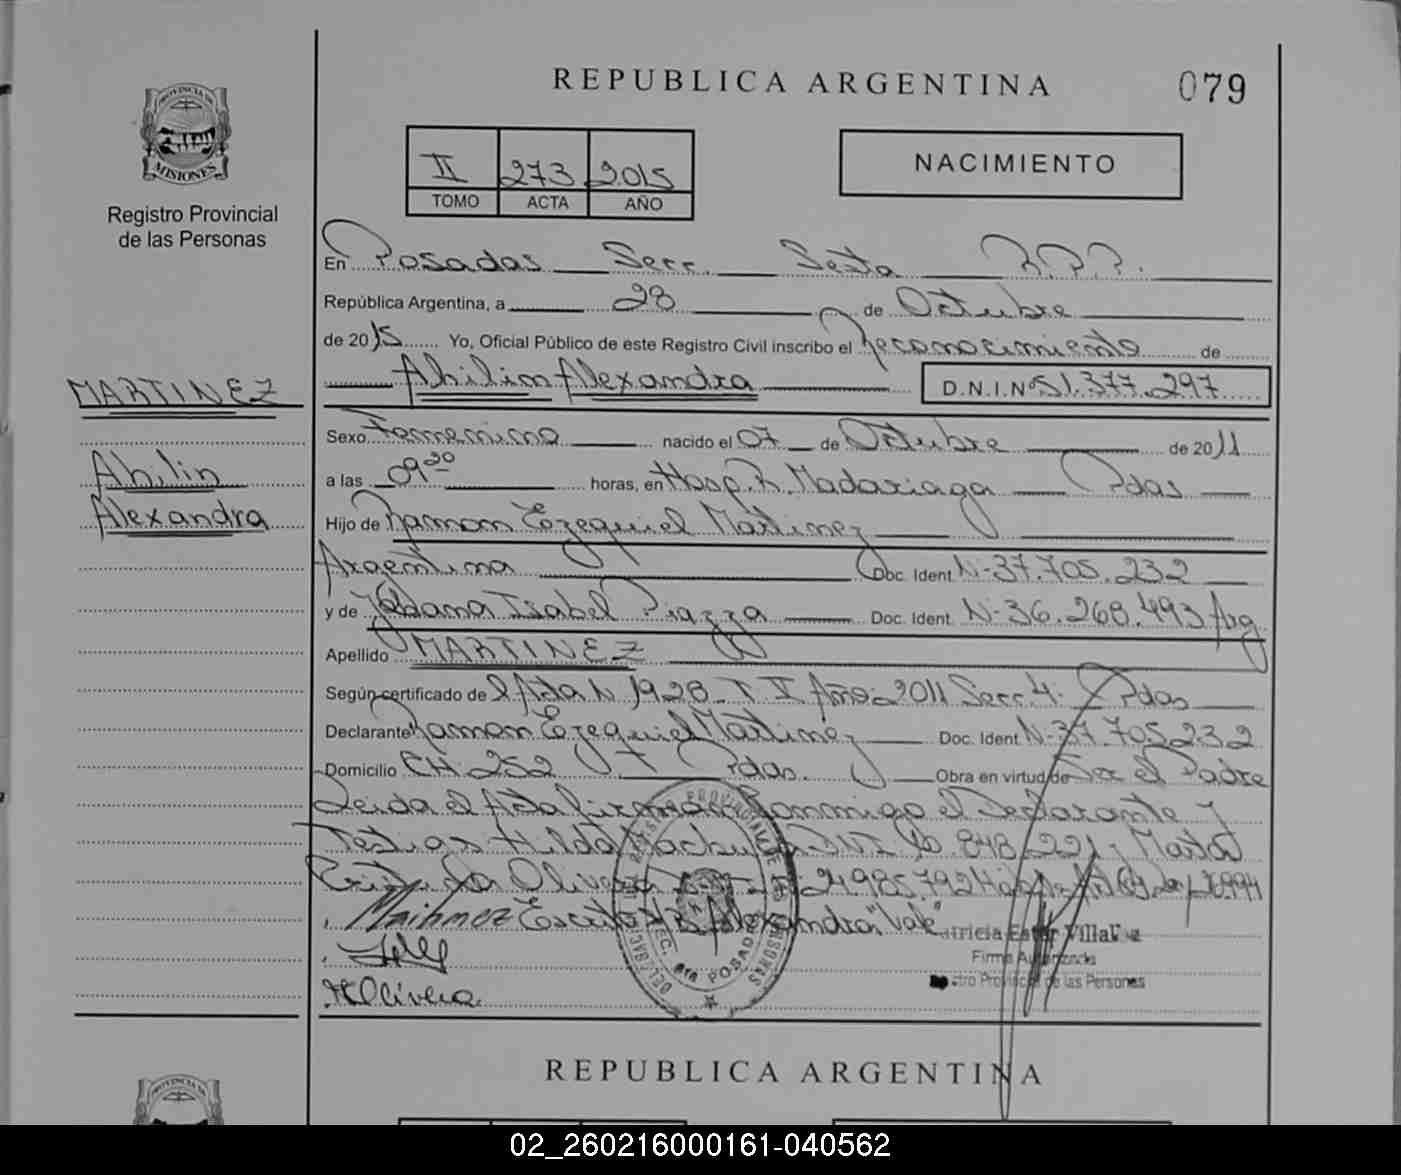 REPUBLICA ARGENTINA
079
PROVINCIA DE
MISIONES
Registro Provincial
de las Personas
II 273 2015
TOMO ACTA AÑO
NACIMIENTO
En Posadas Secc. Sexta R.P.P.
República Argentina, a 28 de Octubre
de 2015 Yo, Oficial Público de este Registro Civil inscribo el Reconocimiento de
Ahilin Alexandra D.N.I.Nº 51.377.297
MARTINEZ
Ahilin
Alexandra
Sexo Femenino nacido el 07 de Octubre de 2011
a las 09 horas, en Hosp. R. Madariaga Pdas
Hijo de Ramon Ezequiel Martinez
Argentina Doc. Ident. N-37.705.232
y de Isabel Piazza Doc. Ident. N-36.268.493 Arg
Apellido MARTINEZ
Según certificado de Acta N 1928 T II Año 2011 Secc. 4 Pdas
Declarante Ramon Ezequiel Martinez Doc. Ident. N-37.705.232
Domicilio CH. 252 Pdas. Obra en virtud de Ser el Padre
Leida el Acta firman Conmigo el Declarante y
Testigos Hilda DNI 848.221 y
Olivera 24.985.792
Martinez Alexandra "Vale"
Patricia Ester
Firma Autorizada
Registro Provincial de las Personas
MOlivera
REPUBLICA ARGENTINA
PROVINCIA DE
02_260216000161-040562